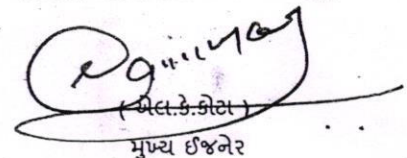 (એલ.કે.કોટા)
મુખ્ય ઈજનેર